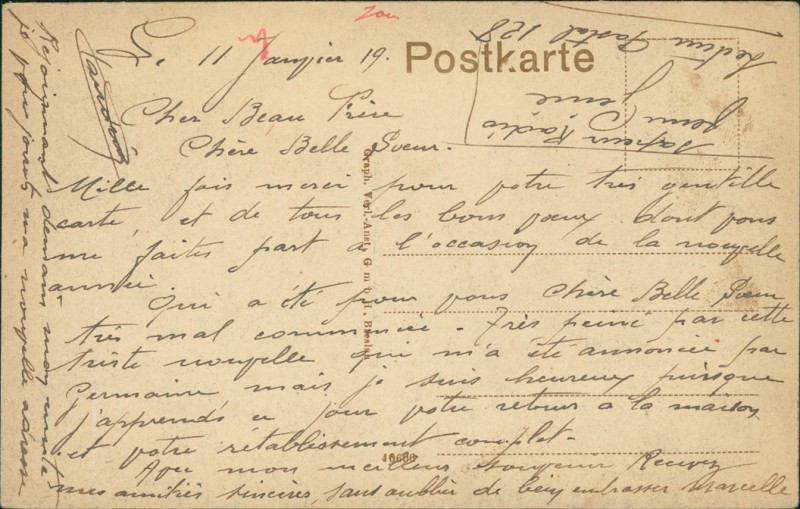 Le 11 Janvier 19.
Postkarte
Cher Beau Frère
Chère Belle Soeur.
Mille fois merci pour votre très gentille
carte, et de tous les bons voeux dont vous
me faites part à l'occasion de la nouvelle
année.
Qui a été pour vous Chère Belle Soeur
très mal commencée. Très peiné par cette
triste nouvelle qui m'a été annoncée par
Germaine mais je suis heureux puisque
j'apprends ce jour votre retour à la maison
et votre rétablissement complet.
Avec mon meilleur souvenir Recevez
mes amitiés sincères, sans oublier de bien embrasser Marcelle
Rejoignant demain mon unité,
je vous joins ma nouvelle adresse
Sapeur Radio
Génie
Secteur Postal 128
Graph. Verl.-Anst. G. m. b. H., Breslau
10686